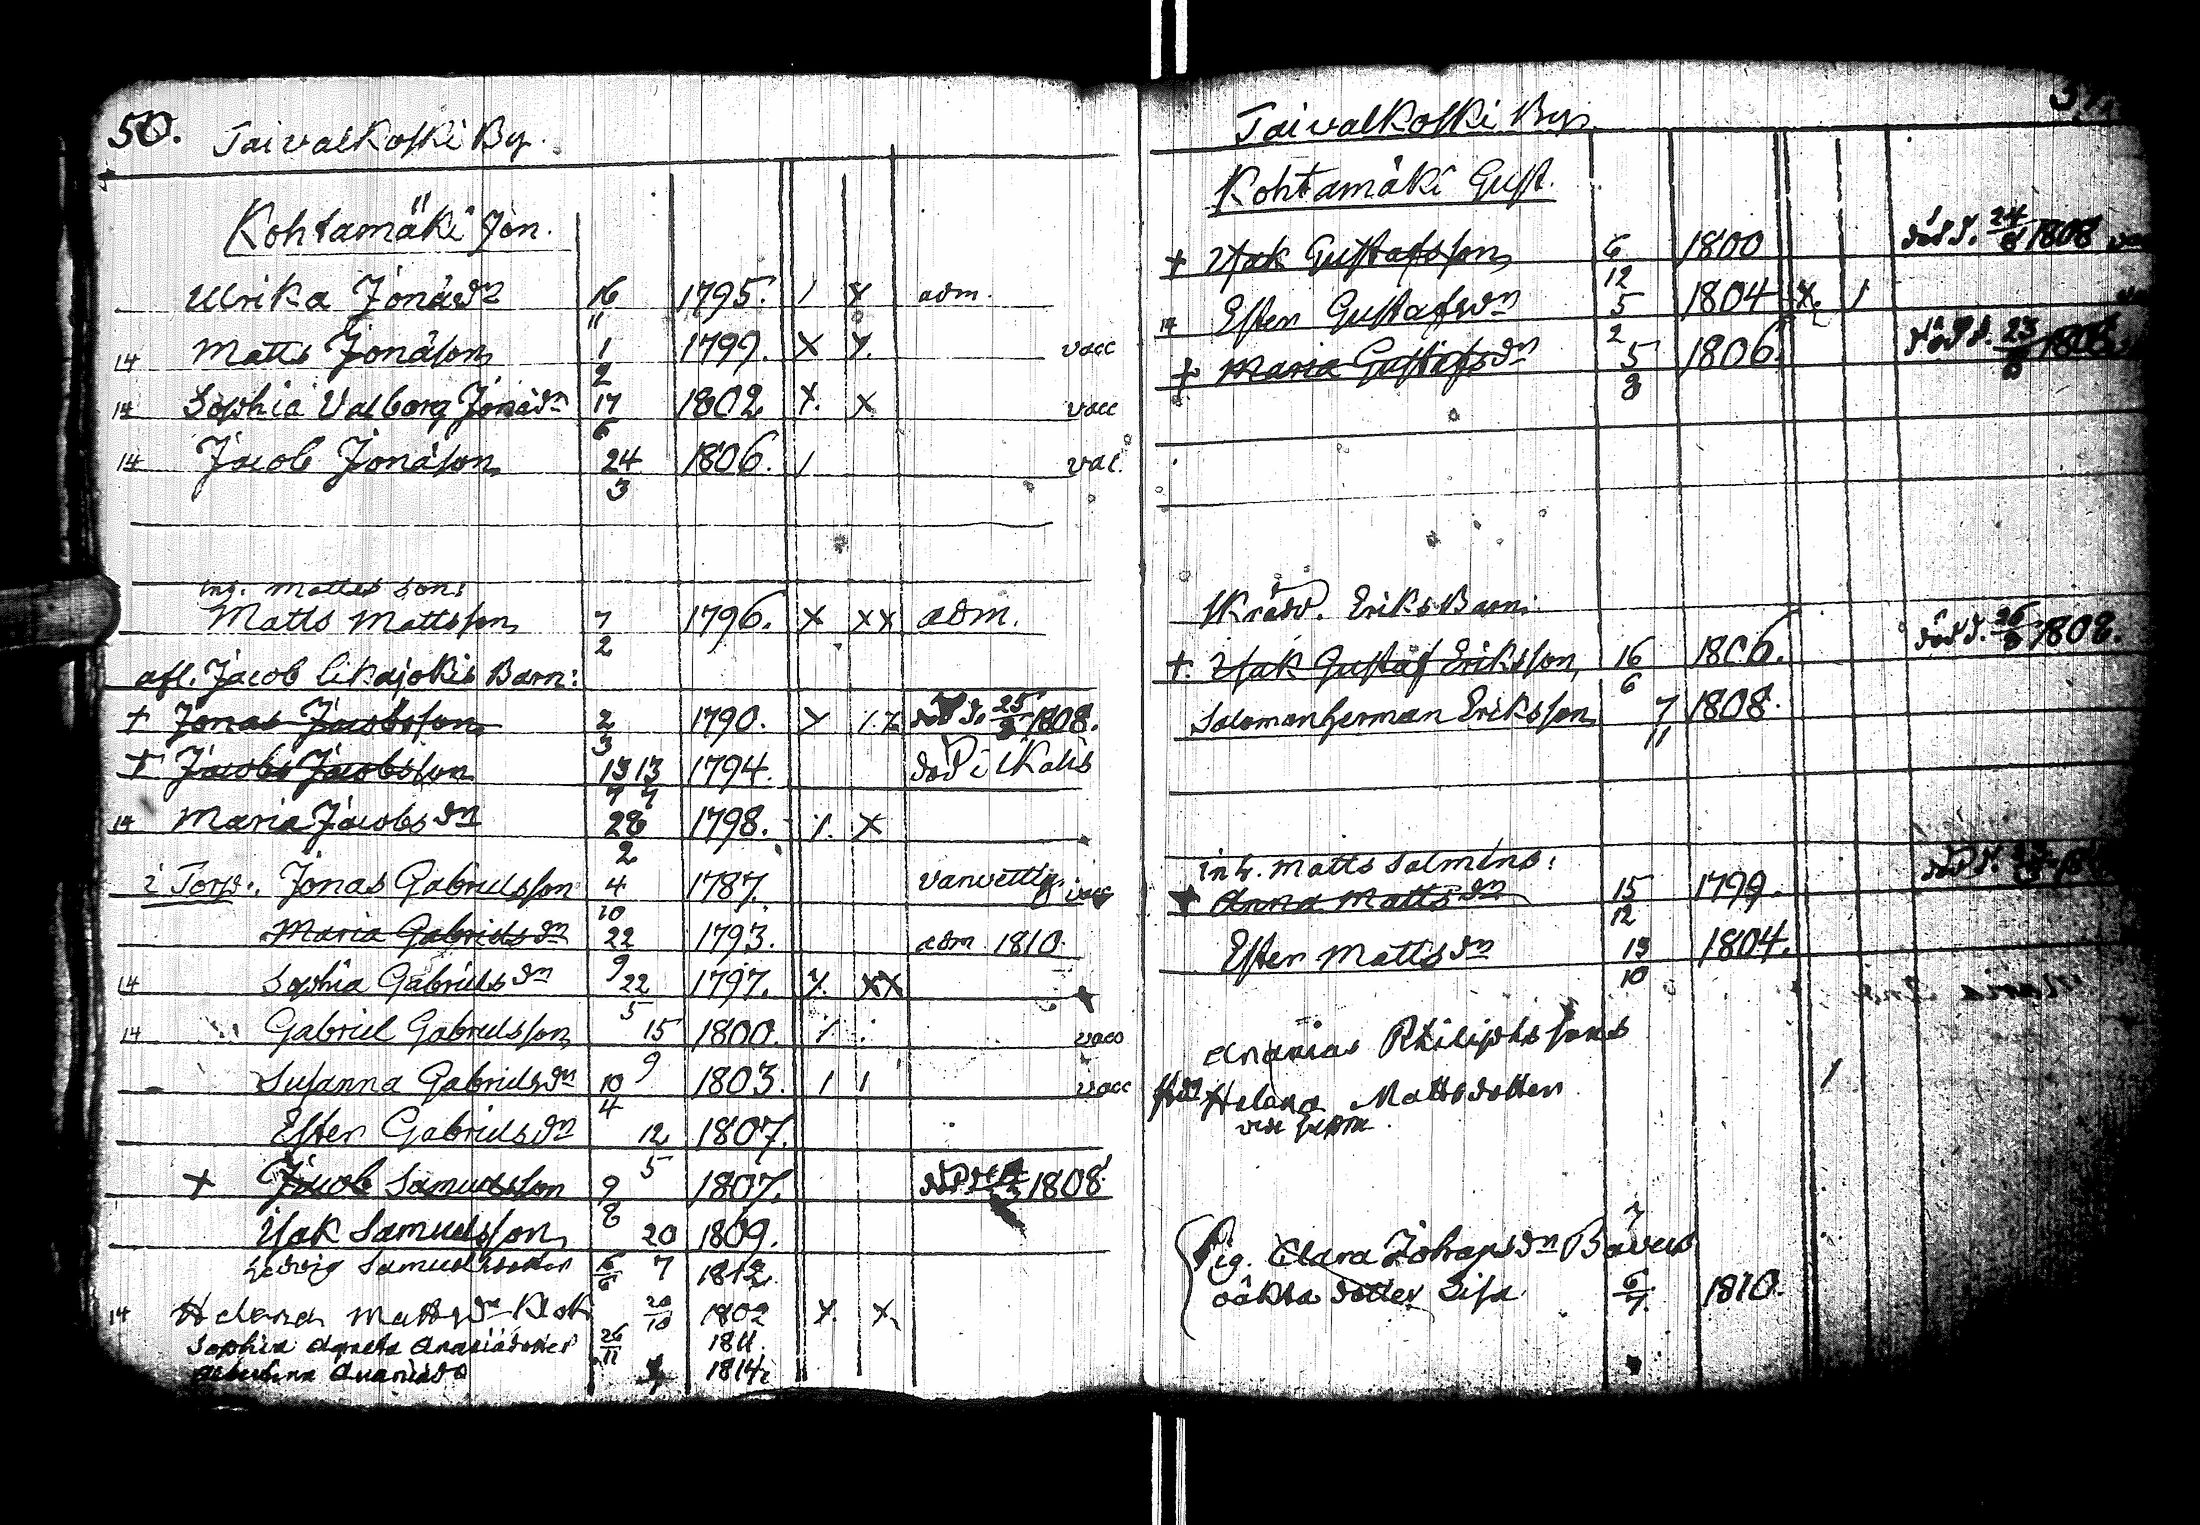 50. Taivalkoski By.
Kohtamäki Jon.
Ulrika Jonædn 16/11 1795. / X adm.
14 Matts Jonæson 1/2 1799. X X. vacc
14 Sophia Valborg Jonædn 17/6 1802 X. X vacc
14 Jacob Jonæson 24/3 1806. / vac.
inh. Mattes son:
Matts Mattsson 7/2 1796. X XX adm.
afl. Jacob likajokis Barn:
+ Jonas Jacobsson 2/3 1790. död d. 25/3 1808.
+ Jacob Jacobsson 13/7 13/7 1794. död i ikalis
14 Maria Jacobs dn 28/2 1798. X
i Torp. Jonas Gabrielsson 4/10 1787. vanvettig
Maria Gabriels dn 22/9 1793. adm. 1810.
14 Sophia Gabriels dn 22/5 1797. X. XX
14 Gabriel Gabrielsson 15/9 1800. vacc
Susanna Gabriels dn 10/4 1803. / / vacc
Ester Gabriels dn 12/5 1807.
+ Jacob Samuelsson 9/8 1807. 1808
Isak Samuelsson 20 1809.
Hedvig Samuelsdotter 16/6 7 1812
14 Helena Matts dn Klok 20/10 1802 X. X
Sophia Agneta Ananiædotter 26/11 1811.
Ananiæd 1814
Taivalkoski By.
Kohtamäki Gust.
+ Isak Gustafsson 6/12 1800 död d. 24/8 1808
14 Ester Gustafs dn 5/2 1804 X /
+ Maria Gustafs dn 5/8 1806. död d. 23
Skrädd. Eriks Barn:
+ Isak Gustaf Eriksson 16/6 1806. död d. 26/3 1808.
Salomon Herman Eriksson 7/11 1808.
inh. Matts Salmĕns:
+ Anna Matts dn 15/12 1799.
Ester Matts dn 13/10 1804.
Ananias Philiphssons
Hu Helena Mattsdotter /
Pig. Clara Johans dn
oäkta dotter Lisa 6/7 1810.